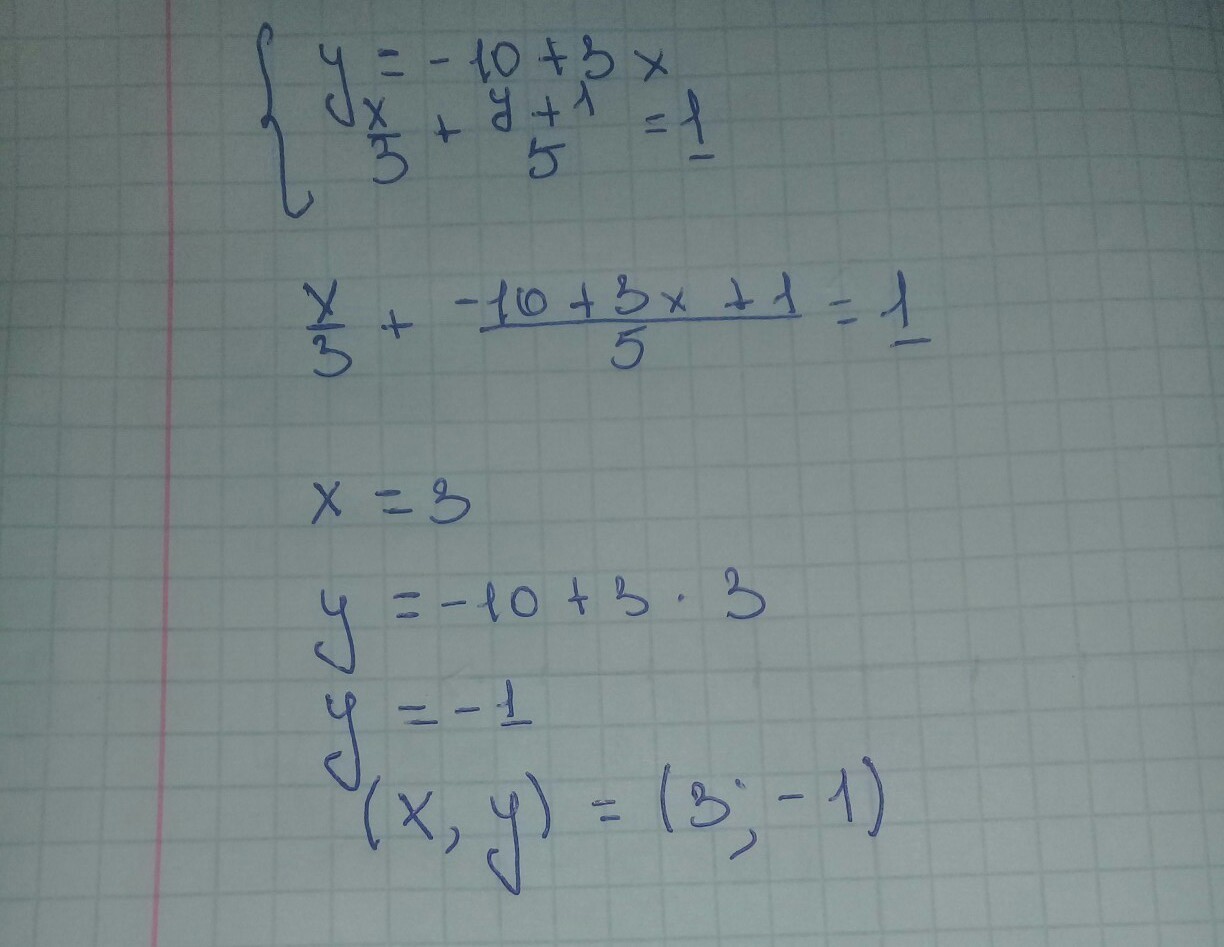 y = -10 + 3x
x/3 + y+1/5 = 1
x/3 + -10 + 3x + 1/5 = 1
x = 3
y = -10 + 3 · 3
y = -1
(x, y) = (3; -1)